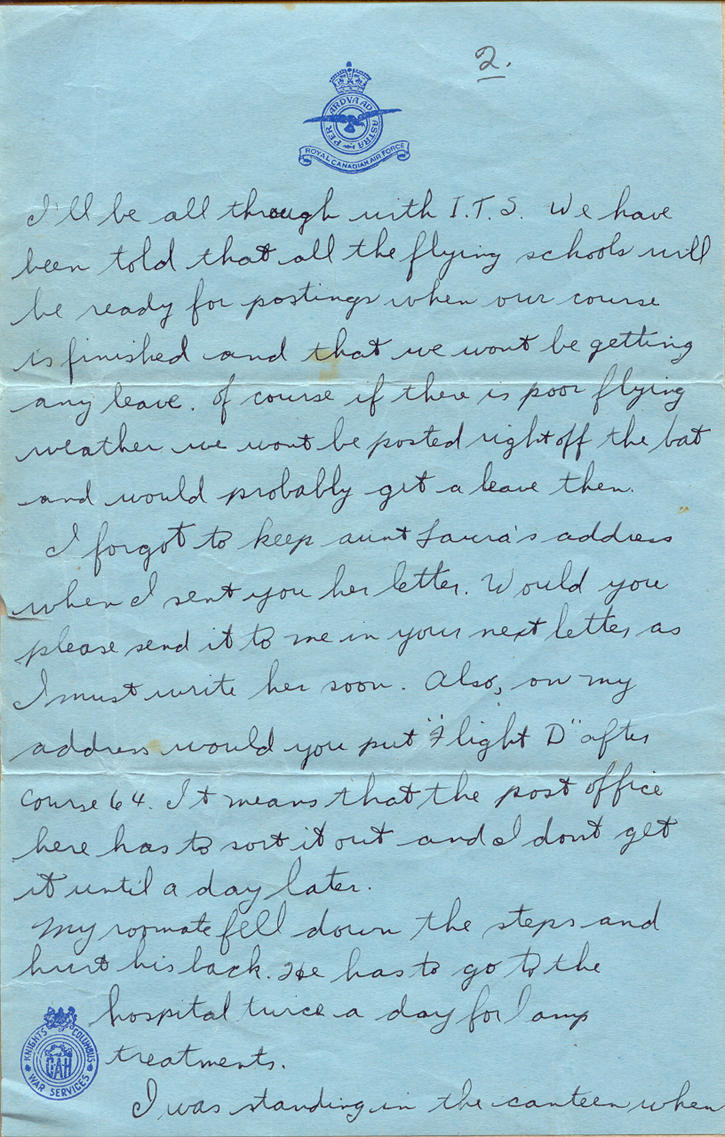 2.
PER ARDVA AD ASTRA
ROYAL CANADIAN AIR FORCE
I'll be all through with I.T.S. We have
been told that all the flying schools will
be ready for postings when our course
is finished and that we wont be getting
any leave. Of course if there is poor flying
weather we wont be posted right off the bat
and would probably get a leave then.
I forgot to keep aunt Laura's address
when I sent you her letter. Would you
please send it to me in your next letter as
I must write her soon. Also, on my
address would you put "Flight D" after
Course 64. It means that the post office
here has to sort it out and I dont get
it until a day later.
My roomate fell down the steps and
hurt his back. He has to go to the
hospital twice a day for lamp
treatments.
I was standing in the canteen when
KNIGHTS OF COLUMBUS
CAH
WAR SERVICES